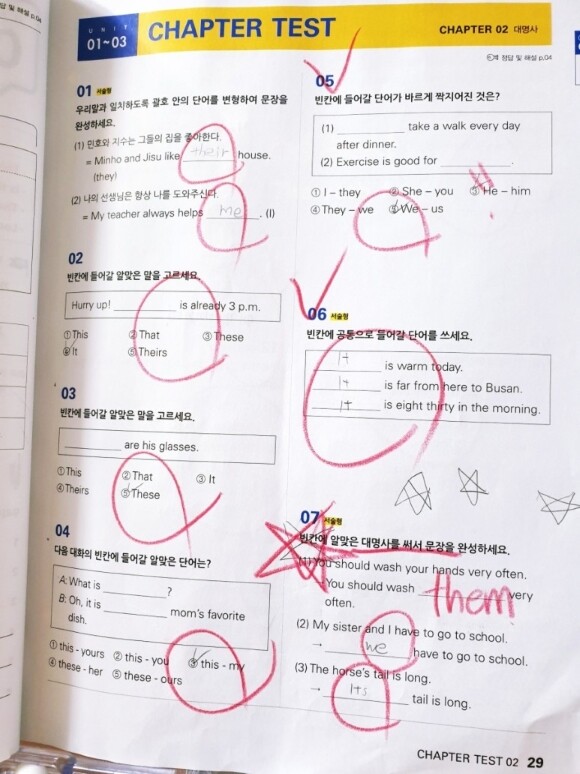 답 및 해설 p.04
UNIT
01~03
CHAPTER TEST
CHAPTER 02 대명사
정답 및 해설 p.04
01 서술형
우리말과 일치하도록 괄호 안의 단어를 변형하여 문장을
완성하세요.
(1) 민호와 지수는 그들의 집을 좋아한다.
= Minho and Jisu like their house.
(they)
(2) 나의 선생님은 항상 나를 도와주신다.
= My teacher always helps me. (I)
02
빈칸에 들어갈 알맞은 말을 고르세요.
Hurry up! ________ is already 3 p.m.
① This ② That ③ These
④ It ⑤ Theirs
03
빈칸에 들어갈 알맞은 말을 고르세요.
________ are his glasses.
① This ② That ③ It
④ Theirs ⑤ These
04
다음 대화의 빈칸에 들어갈 알맞은 단어는?
A: What is ________ ?
B: Oh, it is ________ mom's favorite
dish.
① this - yours ② this - you ③ this - my
④ these - her ⑤ these - ours
05
빈칸에 들어갈 단어가 바르게 짝지어진 것은?
(1) ________ take a walk every day
after dinner.
(2) Exercise is good for ________.
① I – they ② She – you ③ He – him
④ They – we ⑤ We – us
06 서술형
빈칸에 공통으로 들어갈 단어를 쓰세요.
It is warm today.
It is far from here to Busan.
It is eight thirty in the morning.
07 서술형
빈칸에 알맞은 대명사를 써서 문장을 완성하세요.
(1) You should wash your hands very often.
→ You should wash them very
often.
(2) My sister and I have to go to school.
→ we have to go to school.
(3) The horse's tail is long.
→ Its tail is long.
CHAPTER TEST 02 29